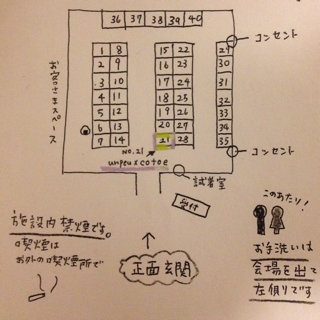 36 37 38 39 40
コンセント
1 8 15 22 29
2 9 16 23 30
3 10 17 24 31
4 11 18 25 32
5 12 19 26 33
6 13 20 27 34
7 14 21 28 35
お客さまスペース
コンセント
NO.21
unpeu x cotoe
試着室
受付
このあたり!
施設内禁煙です。
喫煙は
お外の喫煙所で
正面玄関
お手洗いは
会場を出て
左側りです